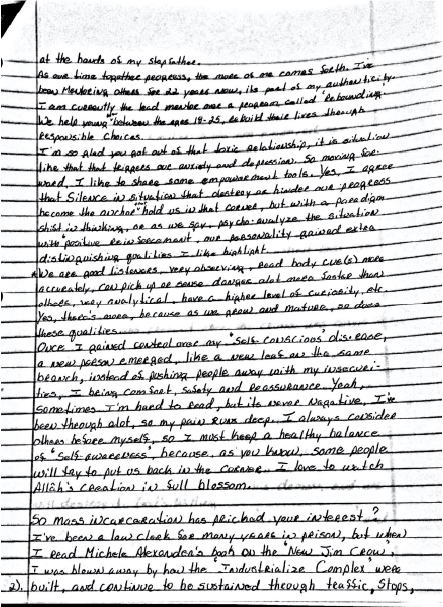 at the hands of my stepfather.
As our time together progress, the more of me comes forth. I've
been Mentoring others for 22 years now, its part of my authenticity.
I am currently the lead mentor over a program called "Rebounding"
We help young men between the ages 18-25, rebuild their lives through
Responsible Choices.
I'm so glad you got out of that toxic relationship, it is situation
like that that triggers our anxiety and depression. So moving for-
ward, I like to share some empowerment tools. Yes, I agree
that Silence in situation that destroy or hinder our progress
become the anchor hold us in that corner, but with a paradigm
shift in thinking, or as we say, psycho-analyze the situation
with "positive Reinforcement, our personality gained extra
distinguishing qualities I like highlight.
We are good listeners, very observing, read body cue(s) more
accurately, can pick up or sense danger alot more faster than
others, very analytical, have a higher level of curiosity, etc.
Yes, there's more, because as we grow and mature, so does
these qualities.
Once I gained control over my "Self-Conscious" disease,
a new person emerged, like a new leaf on the same
branch, instead of pushing people away with my insecuri-
ties, I bring comfort, safety and Reassurance. Yeah,
sometimes I'm hard to read, but its never negative, I've
been through alot, so my pain runs deep. I always consider
others before myself, so I must keep a healthy balance
of "Self-awareness", because, as you know, some people
will try to put us back in the corner. I love to watch
Allâh's creation in full blossom.
So mass incarceration has pricked your interest?
I've been a law clerk for many years in prison, but when
I read Michele Alexander's book on the "New Jim Crow,"
I was blown away by how the "Industrialize Complex" were
2). built, and continue to be sustained through traffic, Stops,